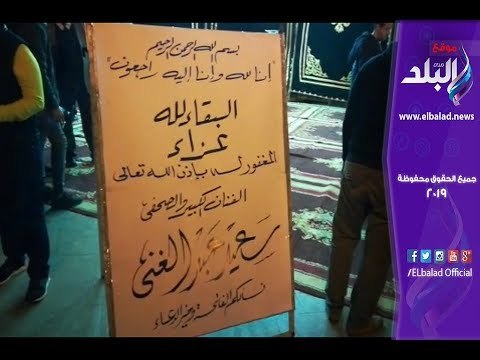 بسم الله الرحمن الرحيم
"إنا لله وإنا إليه راجعون"
البقاء لله
عزاء
المغفور له بإذن الله تعالى
الفنان الكبير والصحفى
سعيد عبد الغنى
نسألكم الفاتحة وخير الدعاء
موقع
صدى
البلد
www.elbalad.news
جميع الحقوق محفوظة
٢٠١٩
/ELbalad Official